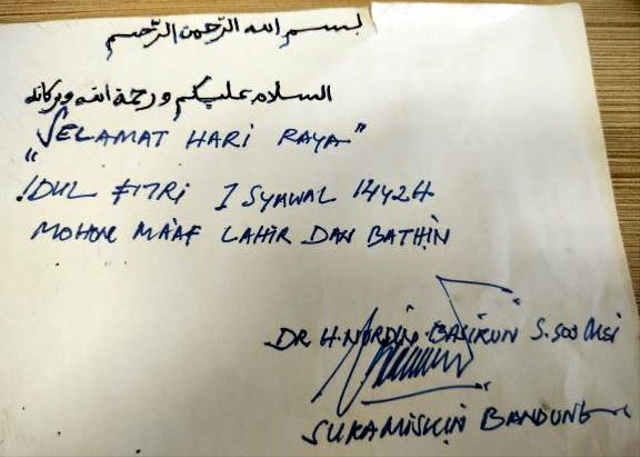 بسم الله الرّحمن الرّحيم
السلام عليكم ورحمة الله وبركاته
"SELAMAT HARI RAYA"
IDUL FITRI I SYAWAL 1442H
MOHON MA'AF LAHIR DAN BATHIN
DR. H. NURDIN BASIRUN S.SOS MSi
SUKAMISKIN BANDUNG